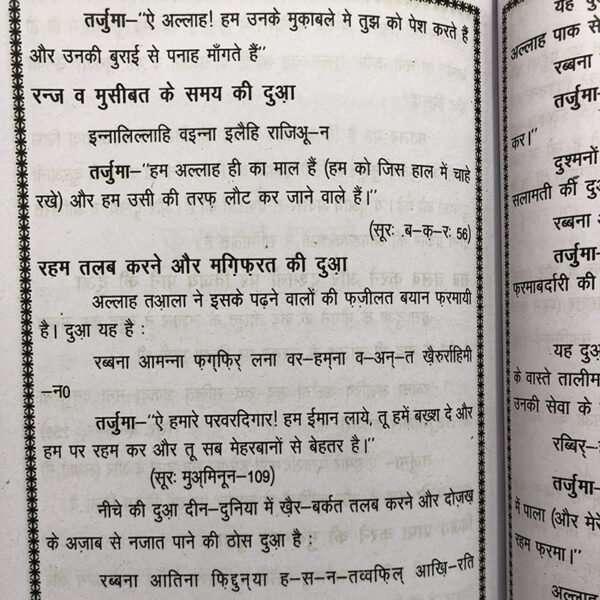 तर्जुमा–"ऐ अल्लाह! हम उनके मुक़ाबले मे तुझ को पेश करते हैं
और उनकी बुराई से पनाह माँगते हैं"
रन्ज व मुसीबत के समय की दुआ़
इन्नालिल्लाहि वइन्ना इलैहि राजिअू–न
तर्जुमा–"हम अल्लाह ही का माल हैं (हम को जिस हाल में चाहे
रखे) और हम उसी की तरफ़ लौट कर जाने वाले हैं।"
(सूरः ब–क़–रः 56)
रहम तलब करने और मग़्फ़िरत की दुआ़
अल्लाह तआ़ला ने इसके पढ़ने वालों की फ़ज़ीलत बयान फ़रमायी
है। दुआ़ यह है :
रब्बना आमन्ना फ़ग़्फ़िर् लना वर–हम्ना व–अन्–त ख़ैरुर्राहिमी
–न0
तर्जुमा–"ऐ हमारे परवरदिगार! हम ईमान लाये, तू हमें बख़्श दे और
हम पर रहम कर और तू सब मेहरबानों से बेहतर है।"
(सूरः मुअ्मिनून–109)
नीचे की दुआ़ दीन–दुनिया में ख़ैर–बर्कत तलब करने और दोज़ख़
के अज़ाब से नजात पाने की ठोस दुआ़ है :
रब्बना आतिना फ़िद्दुन्या ह–स–न–तव्वफ़िल् आख़ि–रति
यह दु
अल्लाह पाक से
रब्बना
तर्जुमा–
कर।"
दुश्मनों
सलामती की दु
रब्बना
तर्जुमा–
फ़रमाबर्दारी की
यह दुअ़
के वास्ते तालीम
उनकी सेवा के
रब्बिर्–
तर्जुमा–
में पाला (और मेरे
रहम फ़रमा।"
अल्लाह